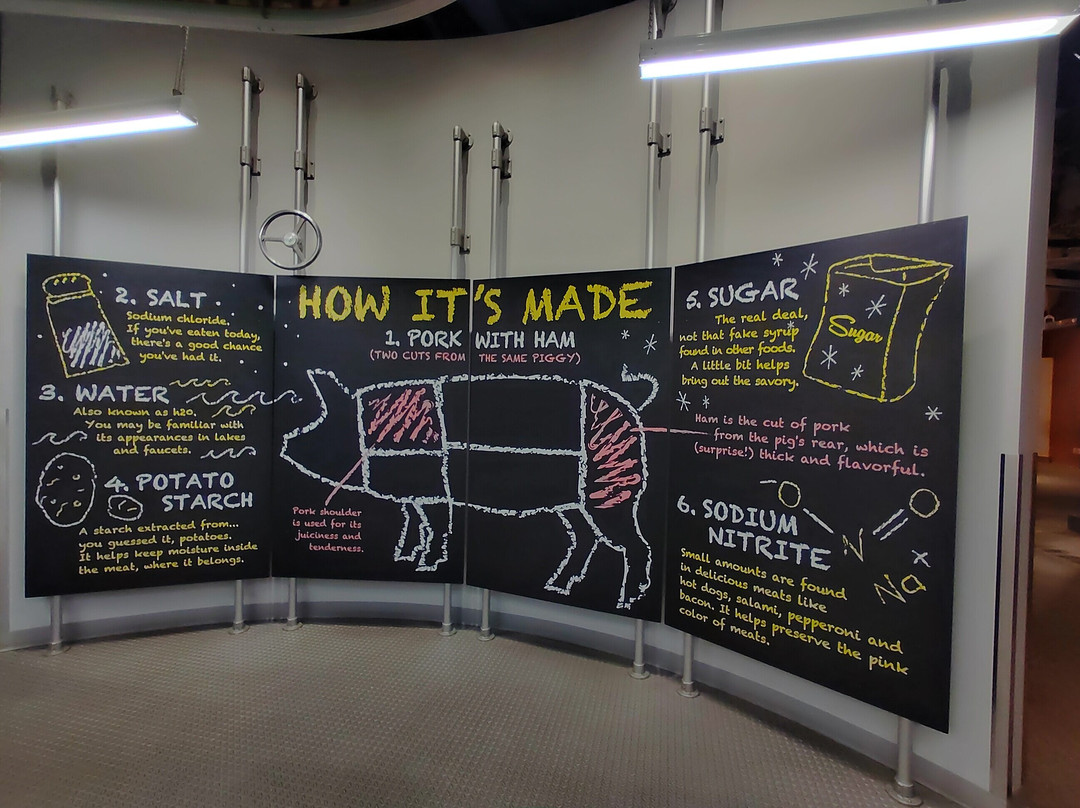 HOW IT'S MADE
1. PORK WITH HAM
(TWO CUTS FROM THE SAME PIGGY)
Pork shoulder
is used for its
juiciness and
tenderness.
2. SALT
Sodium chloride.
If you've eaten today,
there's a good chance
you've had it.
3. WATER
Also known as h2o.
You may be familiar with
its appearances in lakes
and faucets.
4. POTATO
STARCH
A starch extracted from...
you guessed it, potatoes.
It helps keep moisture inside
the meat, where it belongs.
5. SUGAR
The real deal,
not that fake syrup
found in other foods.
A little bit helps
bring out the savory.
Sugar
Ham is the cut of pork
from the pig's rear, which is
(surprise!) thick and flavorful.
6. SODIUM
NITRITE
Small amounts are found
in delicious meats like
hot dogs, salami, pepperoni and
bacon. It helps preserve the pink
color of meats.
N
NO